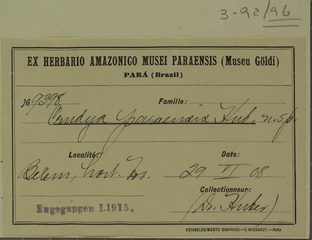 3-92/96
EX HERBARIO AMAZONICO MUSEI PARAENSIS (Museu Göldi)
PARÁ (Brazil)
№ 9398 Famille:
Hub. n. sp.
Localité: Date:
Belem, Hort. 29 VI 08
Collectionneur:
Eingegangen I.1915. (Dr. Huber)
ETABELECIMENTO GRAPHICO—C. WIEGANDT, — PARÁ